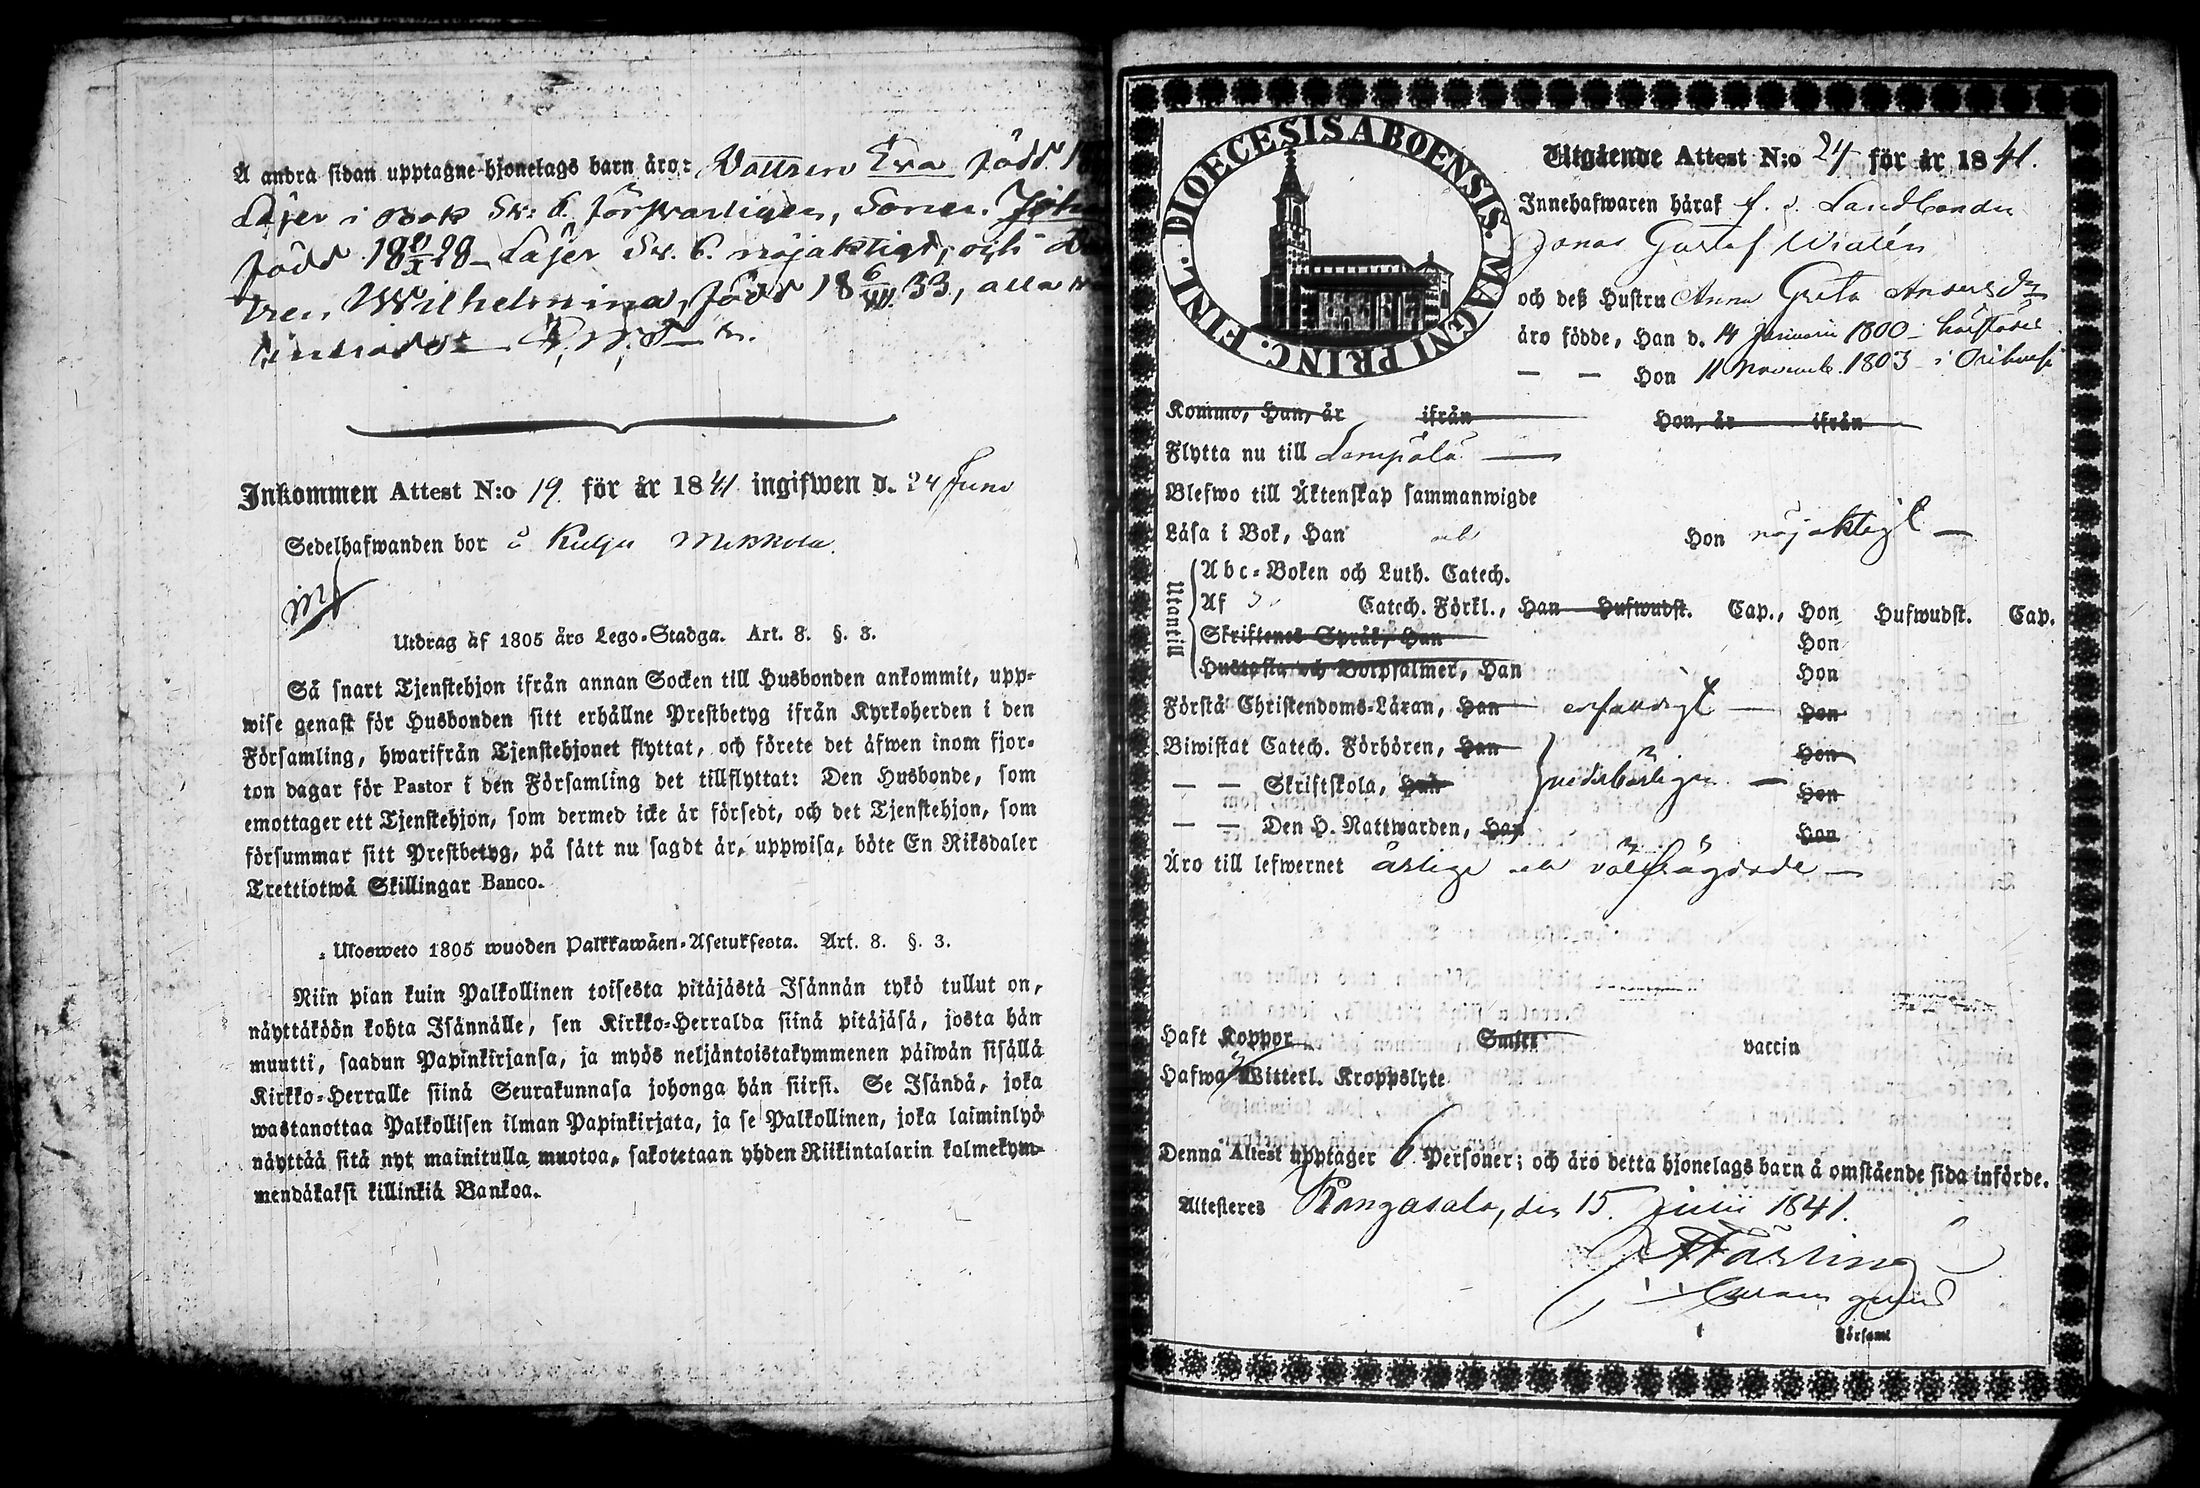 Å andra sidan upptagne hjonelags barn äro: Dottren Eva född
Läser i Bok Sv: b. försvarligen, Sonen
född Läser Sv. b. nöjaktigt, och
tren Wilhelmina, född 18 6 33, alla
Inkommen Attest N:o 19 för år 1841 ingifwen d. 24 Juni
Sedelhafwanden bor å Kulju Mikkola.
Utdrag af 1805 års Lego-Stadga. Art. 8. §. 3.
Så snart Tjenstehjon ifrån annan Socken till Husbonden ankommit, upp-
wise genast för Husbonden sitt erhållne Prestbetyg ifrån Kyrkoherden i den
Församling, hwarifrån Tjenstehjonet flyttat, och förete det äfwen inom fjor-
ton dagar för Pastor i den Församling det tillflyttat: Den Husbonde, som
emottager ett Tjenstehjon, som dermed icke är försedt, och det Tjenstehjon, som
försummar sitt Prestbetyg, på sätt nu sagdt är, uppwisa, böte En Riksdaler
Trettiotwå Skillingar Banco.
Ulosweto 1805 wuoden Palkkawäen-Asetuksesta. Art. 8. §. 3.
Niin pian kuin Palkollinen toisesta pitäjästä Isännän tykö tullut on,
näyttäköön kohta Isännälle, sen Kirkko-Herralda siinä pitäjäsä, josta hän
muutti, saadun Papinkirjansa, ja myös neljäntoistakymmenen päiwän sisällä
Kirkko-Herralle siinä Seurakunnasa johonga hän siirsi. Se Isändä, joka
wastanottaa Palkollisen ilman Papinkirjata, ja se Palkollinen, joka laiminlyö
näyttää sitä nyt mainitulla muotoa, sakotetaan yhden Riikintalarin kolmekym-
mendäkaksi killinkiä Bankoa.
DIOECESIS ABOENSIS. MAGNI PRINC. FINL.
Utgående Attest N:o 24 för år 1841.
Innehafwaren häraf f. d. Landbonden
Jonas Gustaf Widlén
och deß Hustru Anna Greta Andersdr
äro födde, Han d. 14 Januarii 1800 härstädes
— — Hon 11 Novemb. 1803 i Orihvesi
Komme, Han, år ifrån Hon, år ifrån
Flytta nu till Lempälä
Blefwo till Äktenskap sammanwigde
Läsa i Bok, Han och Hon nöjaktigt
Utantill
Abc-Boken och Luth. Catech.
Af Catech. Förkl., Han Hufwudst. Cap., Hon Hufwudst. Cap.
Skriftenes Språk, Han Hon
Hustafla och Botpsalmer, Han Hon
Förstå Christendoms-Läran, Han Hon
Biwistat Catech. Förhören, Han Hon
— — Skriftskola, Han vederbörligen Hon
— — Den H. Nattwarden, Han Hon
Äro till lefwernet ärlige och välfrägdade
Haft Koppor Smitt vaccin
Hafwa Witterl. Kroppslyte
Denna Attest upptager 6 Personer; och äro detta hjonelags barn å omstående sida införde.
Attesteres Kangasala, den 15. Junii 1841.
Församl